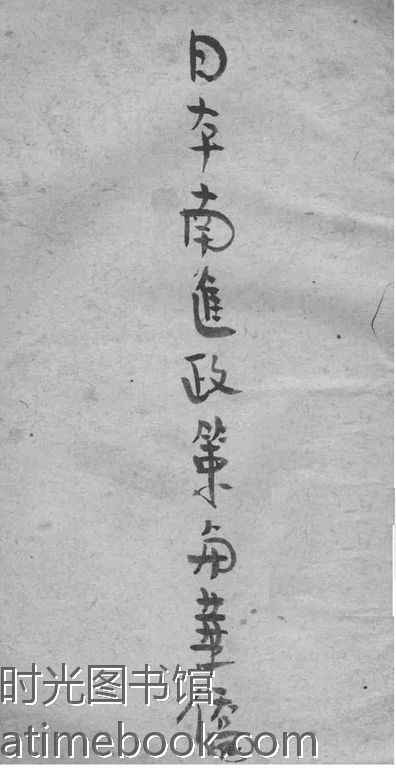 日本南進政策与華僑
时光图书馆
atimebook.com